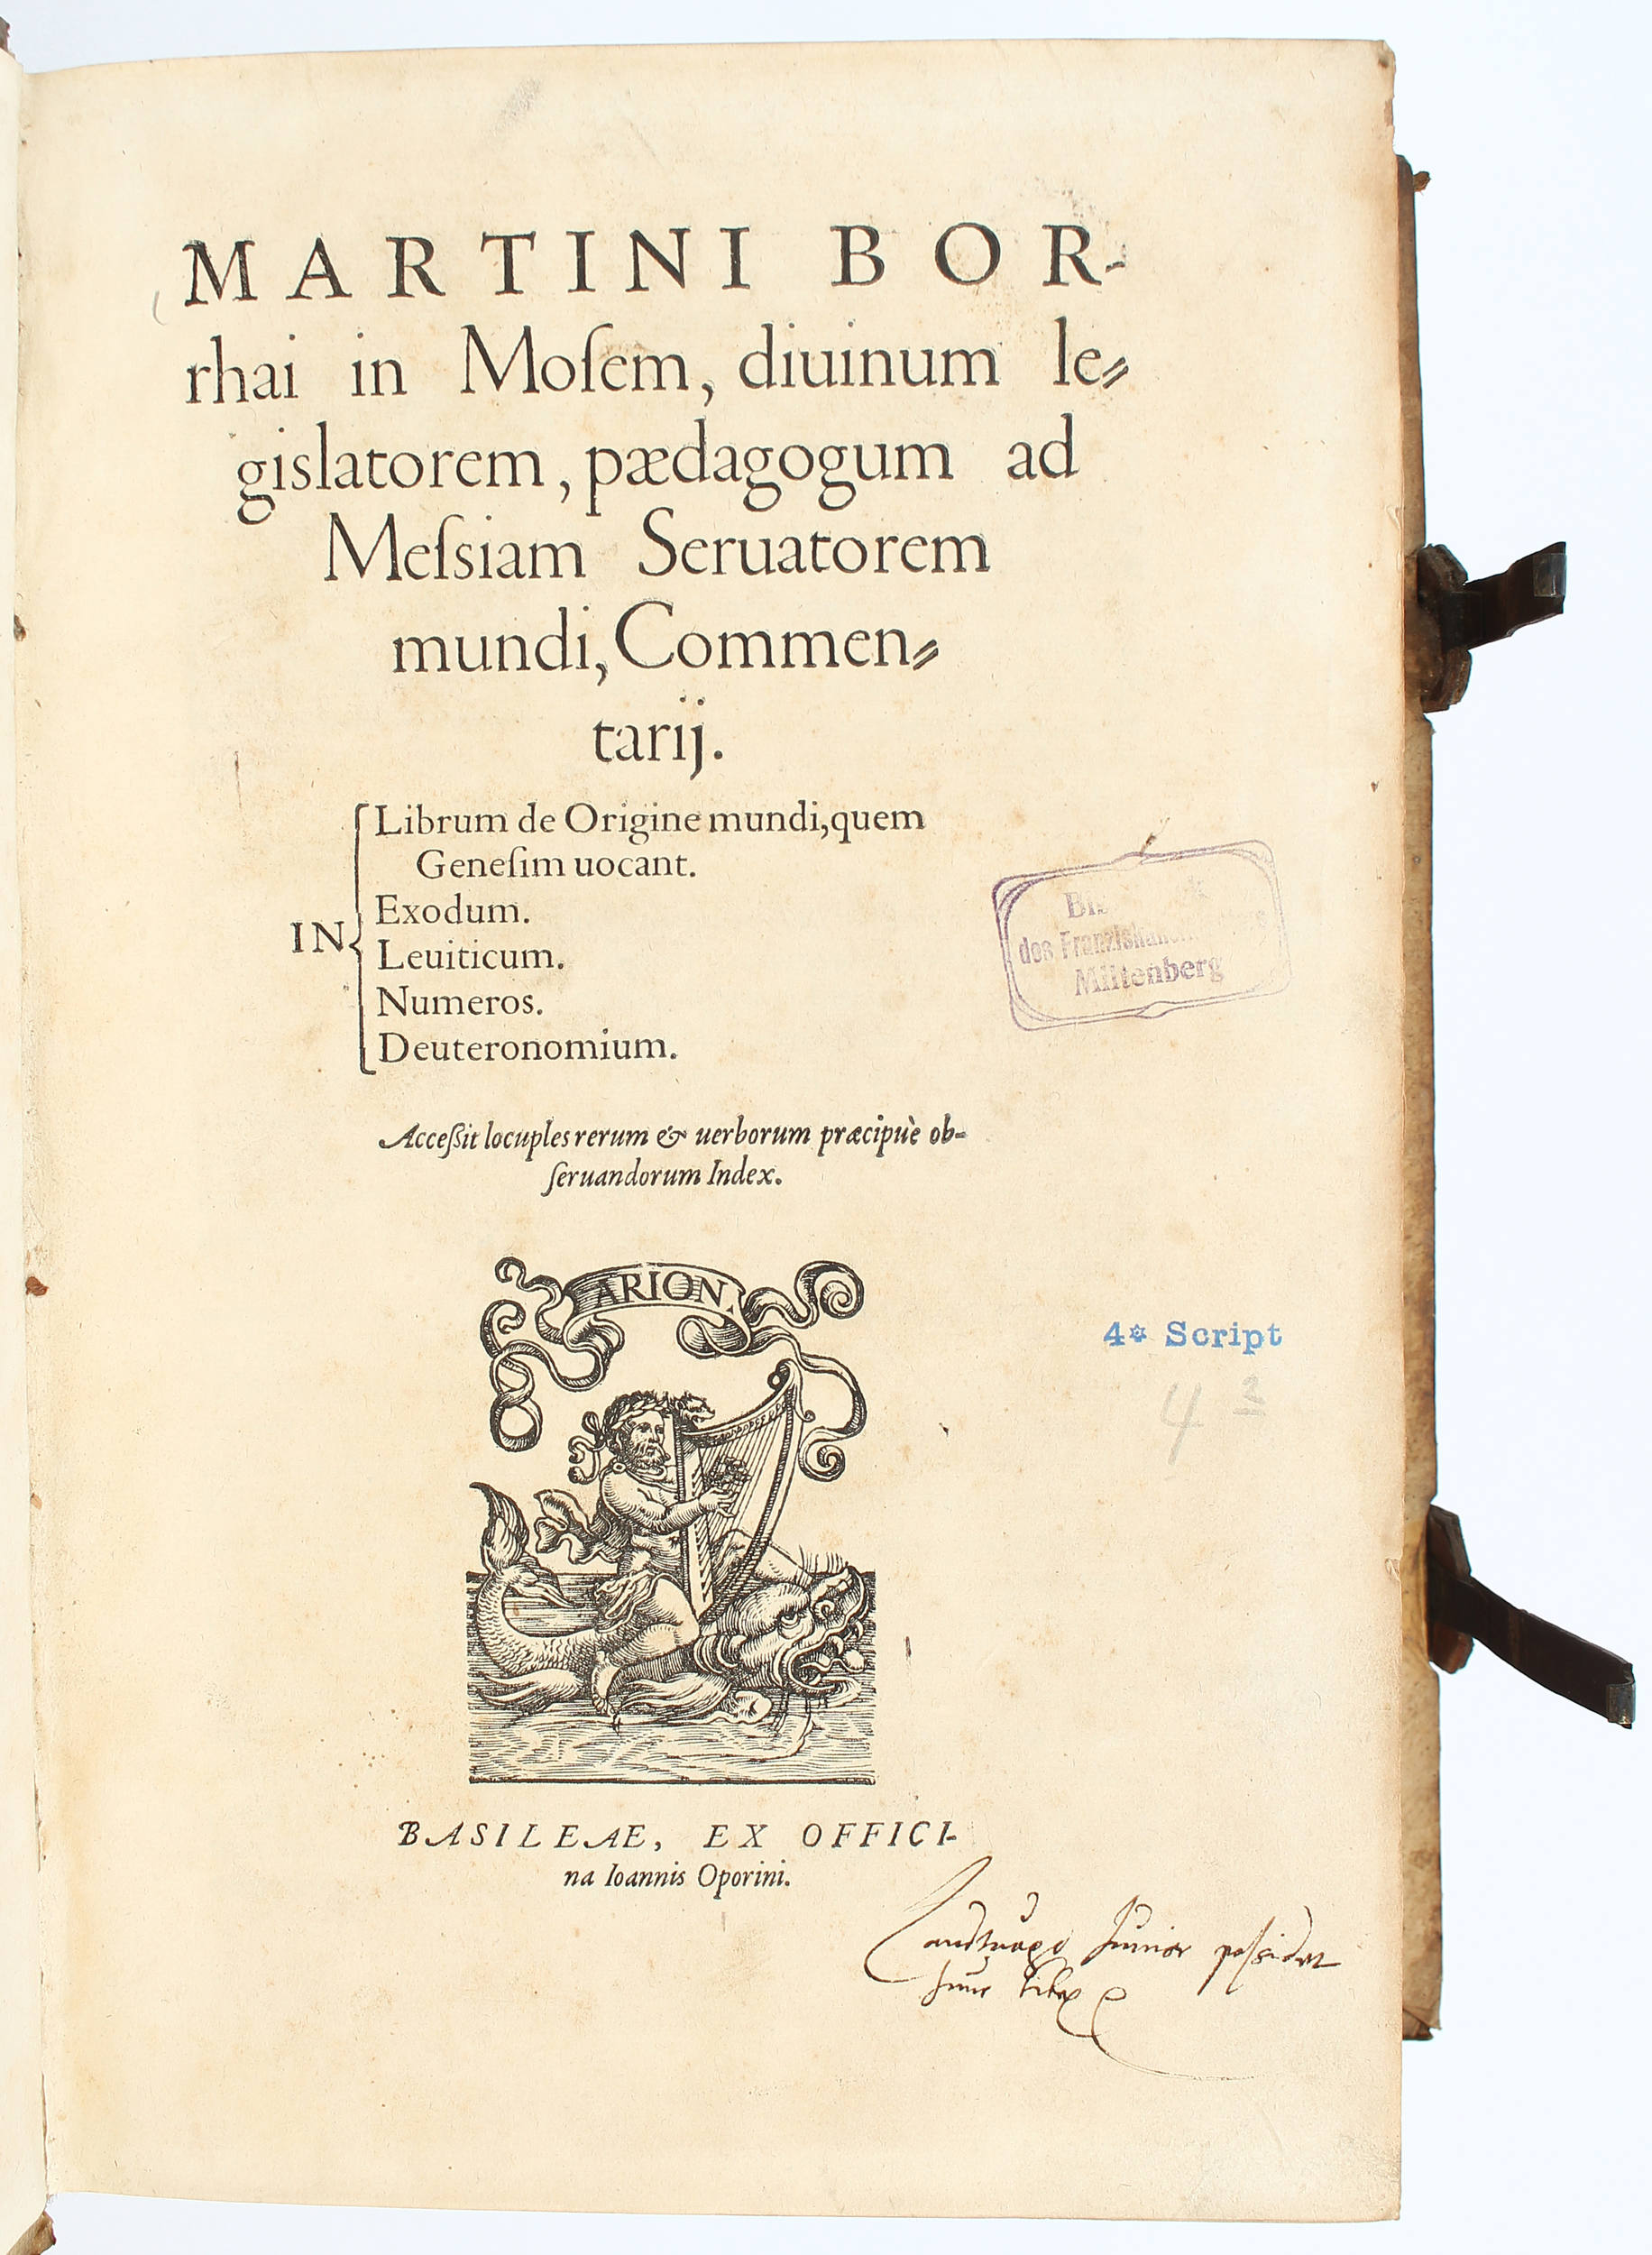 MARTINI BOR-
rhai in Moſem, diuinum le⸗
gislatorem, pædagogum ad
Meſsiam Seruatorem
mundi, Commen⸗
tarij.
IN
Librum de Origine mundi, quem
Geneſim uocant.
Exodum.
Leuiticum.
Numeros.
Deuteronomium.
des
Miltenberg
Acceßit locuples rerum & uerborum præcipuè ob-
ſeruandorum Index.
ARION.
4* Script
4 2
BASILEAE, EX OFFICI-
na Ioannis Oporini.
Junior poſsidet